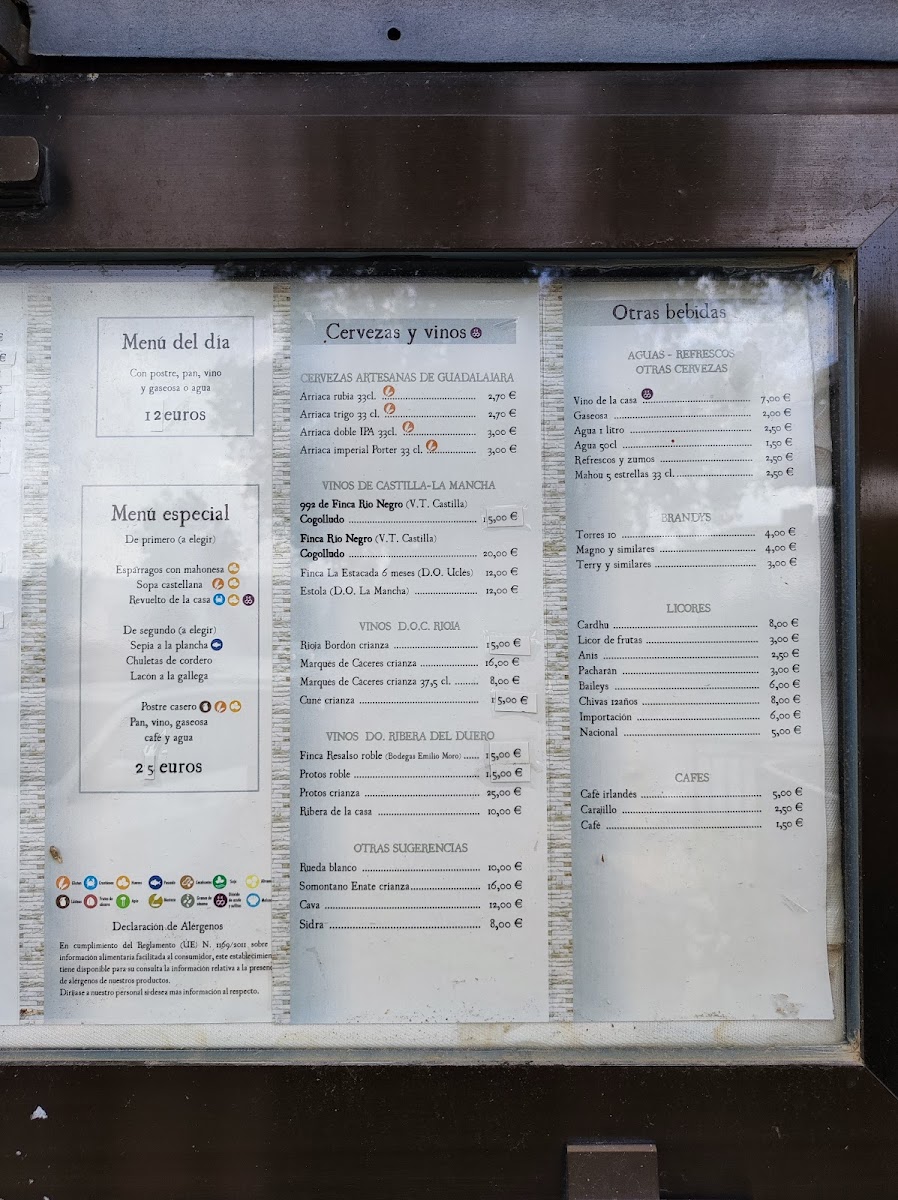 €
Menú del día
Con postre, pan, vino
y gaseosa o agua
12 euros
Menú especial
De primero (a elegir)
Espárragos con mahonesa
Sopa castellana
Revuelto de la casa
De segundo (a elegir)
Sepia a la plancha
Chuletas de cordero
Lacón a la gallega
Postre casero
Pan, vino, gaseosa
café y agua
25 euros
Gluten Crustáceos Huevos Pescado Cacahuetes Soja
Lácteos Frutos de cáscara Apio Mostaza Granos de sésamo Dióxido de azufre y sulfitos
Declaración de Alérgenos
En cumplimiento del Reglamento (UE) N. 1169/2011 sobre
información alimentaria facilitada al consumidor, este establecimien
tiene disponible para su consulta la información relativa a la presenc
de alérgenos de nuestros productos.
Diríjase a nuestro personal si desea más información al respecto.
Cervezas y vinos
CERVEZAS ARTESANAS DE GUADALAJARA
Arriaca rubia 33cl. 2,70 €
Arriaca trigo 33 cl. 2,70 €
Arriaca doble IPA 33cl. 3,00 €
Arriaca imperial Porter 33 cl. 3,00 €
VINOS DE CASTILLA-LA MANCHA
992 de Finca Río Negro (V.T. Castilla)
Cogolludo 15,00 €
Finca Río Negro (V.T. Castilla)
Cogolludo 20,00 €
Finca La Estacada 6 meses (D.O. Uclés) 12,00 €
Estola (D.O. La Mancha) 12,00 €
VINOS D.O.C. RIOJA
Rioja Bordón crianza 15,00 €
Marqués de Cáceres crianza 16,00 €
Marqués de Cáceres crianza 37,5 cl. 8,00 €
Cune crianza 15,00 €
VINOS DO. RIBERA DEL DUERO
Finca Resalso roble (Bodegas Emilio Moro) 15,00 €
Protos roble 15,00 €
Protos crianza 25,00 €
Ribera de la casa 10,00 €
OTRAS SUGERENCIAS
Rueda blanco 10,00 €
Somontano Enate crianza 16,00 €
Cava 12,00 €
Sidra 8,00 €
Otras bebidas
AGUAS - REFRESCOS
OTRAS CERVEZAS
Vino de la casa 7,00 €
Gaseosa 2,00 €
Agua 1 litro 2,50 €
Agua 50cl 1,50 €
Refrescos y zumos 2,50 €
Mahou 5 estrellas 33 cl. 2,50 €
BRANDYS
Torres 10 4,00 €
Magno y similares 4,00 €
Terry y similares 3,00 €
LICORES
Cardhu 8,00 €
Licor de frutas 3,00 €
Anís 2,50 €
Pacharán 3,00 €
Baileys 6,00 €
Chivas 12años 8,00 €
Importación 6,00 €
Nacional 5,00 €
CAFES
Café irlandés 5,00 €
Carajillo 2,50 €
Café 1,50 €